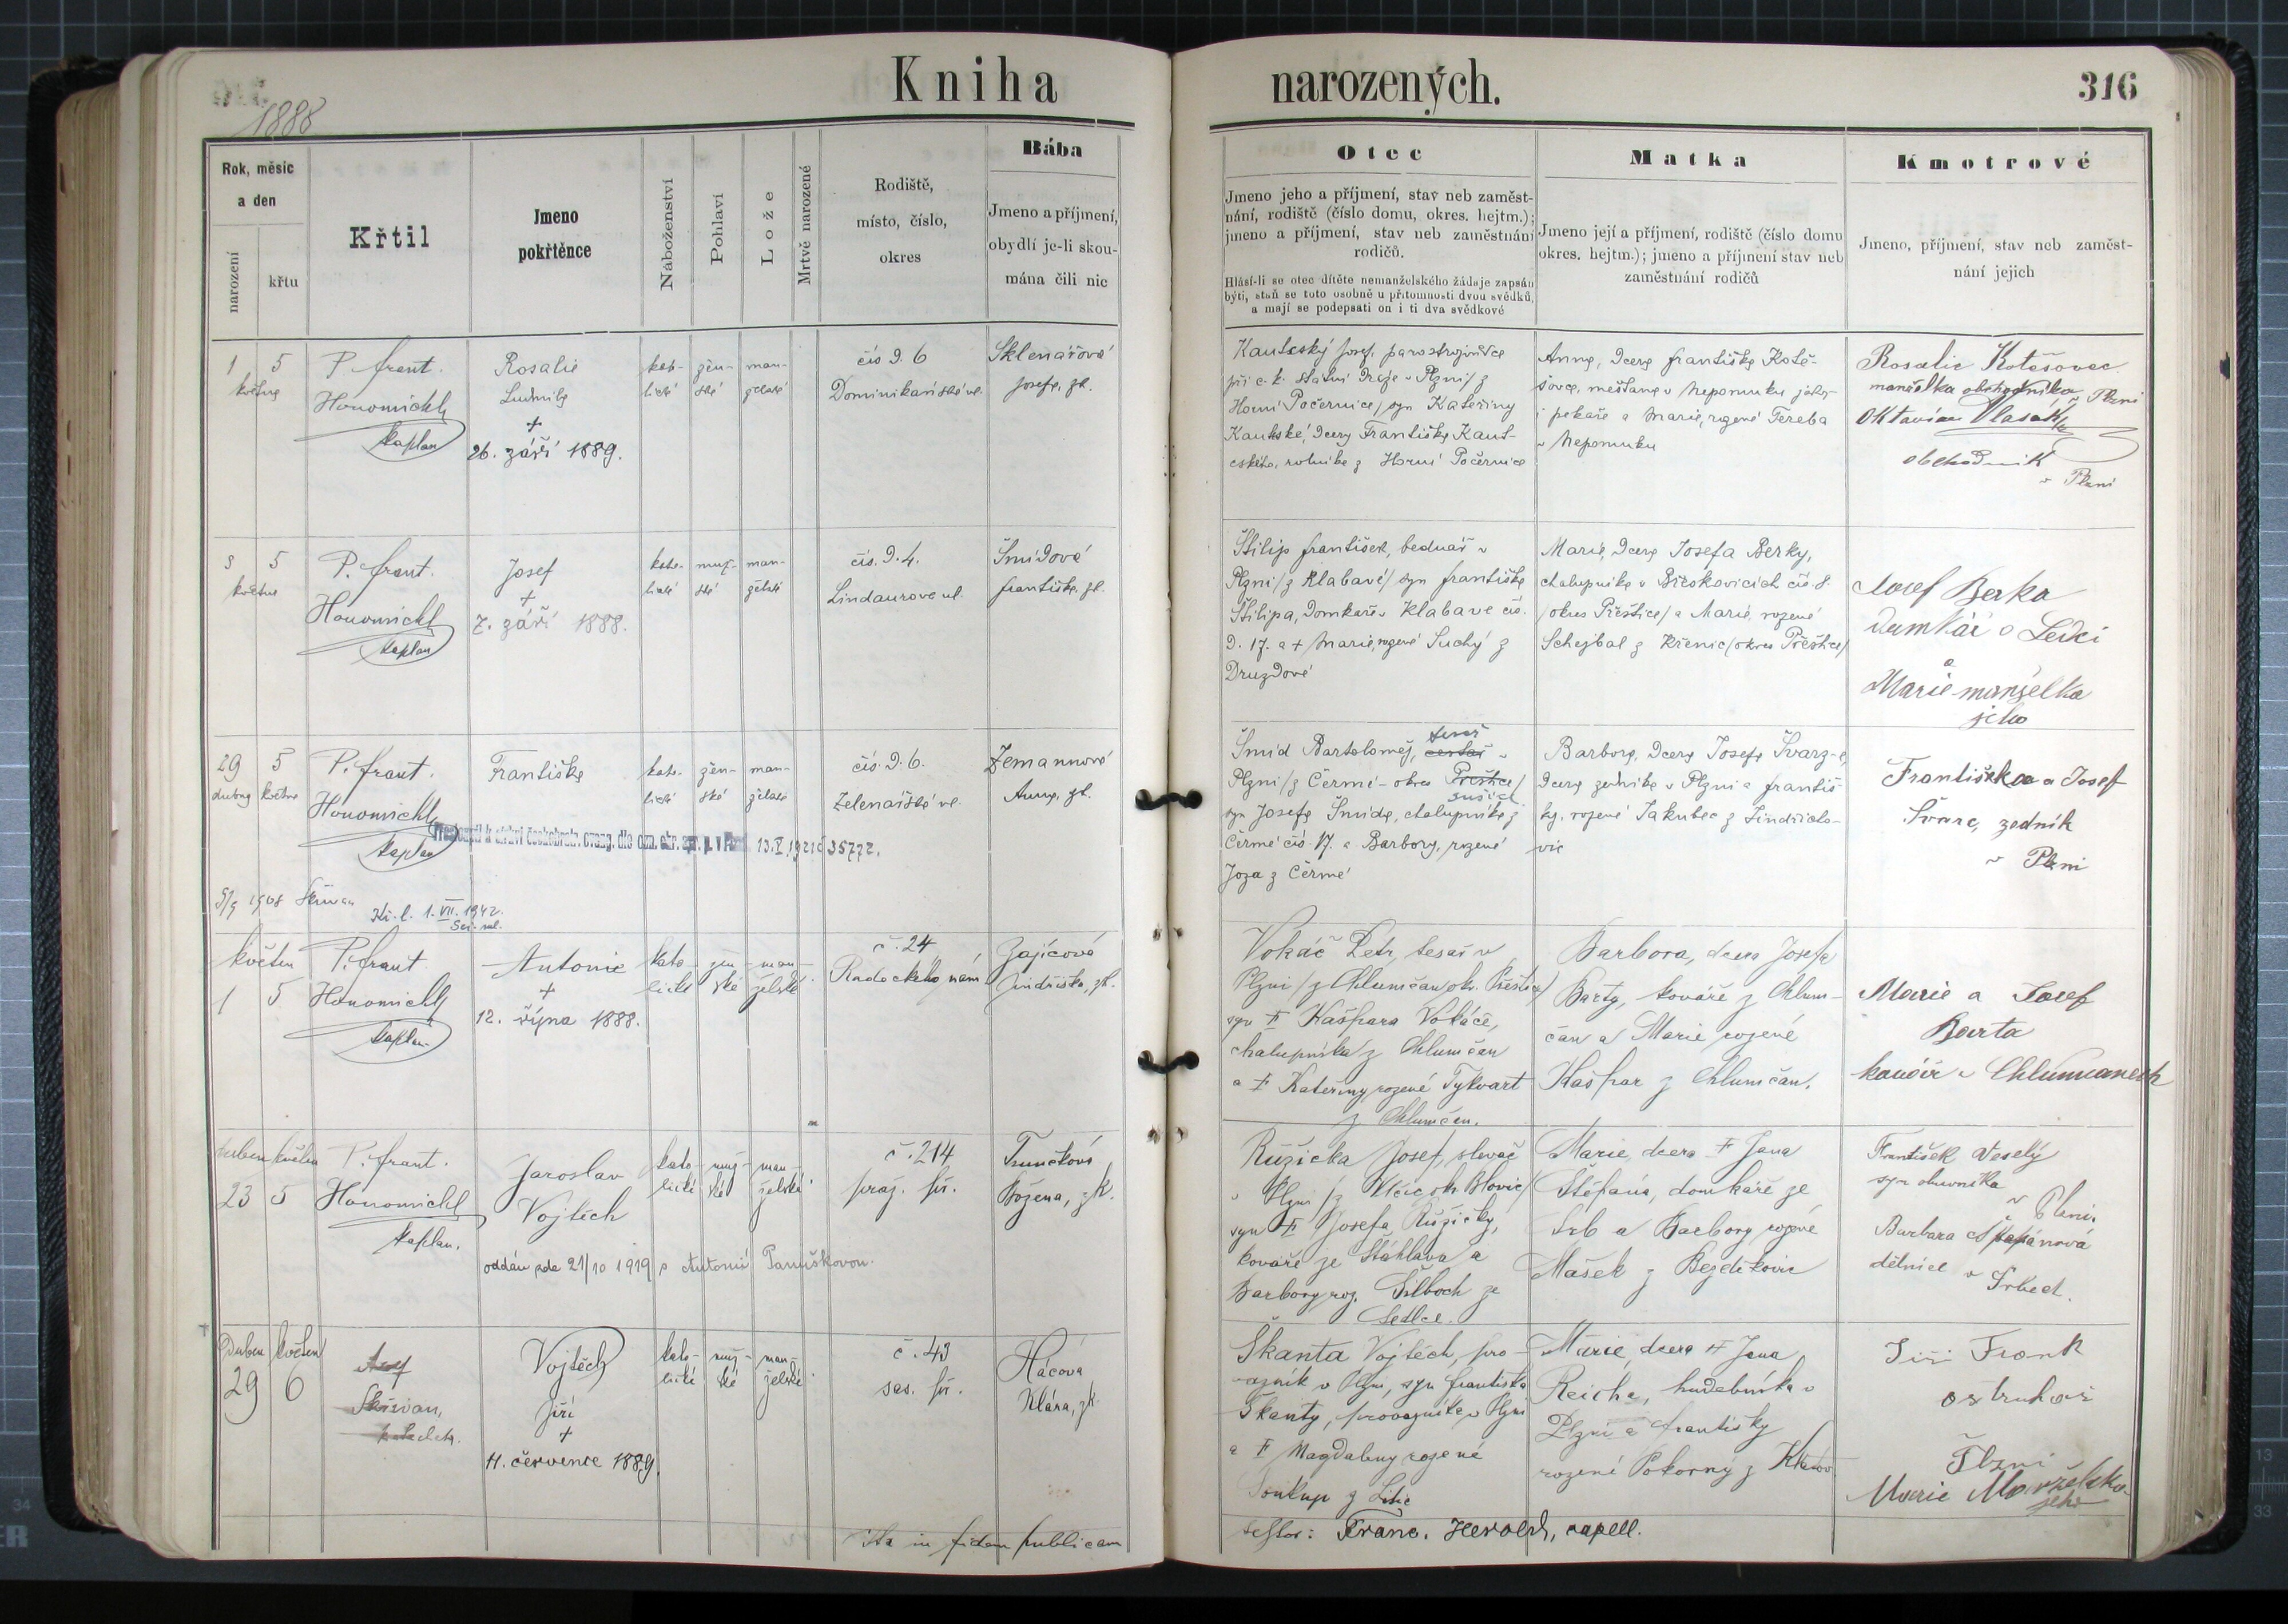 Kniha
narozených.
316
1888
Rok, měsíc
a den
narození
křtu
Křtil
Jmeno
pokřtěnce
Náboženství
Pohlaví
Lože
Mrtvě narozené
Rodiště,
místo, číslo,
okres
Bába
Jmeno a příjmení,
obydlí je-li skou-
mána čili nic
Otec
Jmeno jeho a příjmení, stav neb zaměst-
nání, rodiště (číslo domu, okres. hejtm.);
jmeno a příjmení, stav neb zaměstnání
rodičů.
Hlásí-li se otec dítěte nemanželského žádaje zapsán
býti, staň se toto osobně u přítomnosti dvou svědků,
a mají se podepsati on i ti dva svědkové
Matka
Jmeno její a příjmení, rodiště (číslo domu
okres. hejtm.); jmeno a příjmení stav neb
zaměstnání rodičů
Kmotrové
Jmeno, příjmení, stav neb zaměst-
nání jejich
1 5
května
P. Frant.
Honomichl
kaplan
Rosalie
Ludmila
+
26. září 1889.
kato-
lické
žen-
ské
man-
želské
čís. d. 6
Dominikánské ul.
Sklenářová
Josefa, zk.
Kautcský Josef, parostrojvůdce
při c. k. státní dráze v Plzni / z
Horní Počernice / syn Kateřiny
Kautské, dcery Františka Kaut-
cského, rolníka z Horní Počernice
Anna, dcera Františka Kote-
šovce, měšťana v Nepomuku
pekaře a Marie, rozené Tereba
v Nepomuku
Rosalie Kotěšovec
manželka obchodníka v Plzni
Oktavian Vlasák
obchodník
v Plzni
3 5
května
P. Frant.
Honomichl
kaplan
Josef
+
7. září 1888.
kato-
lické
muž-
ské
man-
želské
čís. d. 4.
Lindaurova ul.
Šmídová
Františka, zk.
Štilip František, bednář v
Plzni / z Klabavé / syn Františka
Štilipa, domkáře v Klabavě čís.
d. 17. a + Marie, rozené Suchý z
Druzdové
Marie, dcera Josefa Berky,
chalupníka v Břeskovicích čís. 8.
/ okres Přeštice / a Marie, rozené
Schejbal z Křenic / okres Přeštice /
Josef Berka
domkář v
a
Marie manželka
jeho
29 5
dubna května
P. Frant.
Honomichl
kaplan
Františka
kato-
lické
žen-
ské
man-
želské
čís. d. 6.
Zelenářské ul.
Zemannová
Anna, zk.
Přestoupil k církvi českobratr. evang. dle ozn. okr. spr. p. v Plzni 13.V.1921 č 35772.
5/9 1908 Skřivan
Ki. l. 1. VII. 1942.
Šmíd Bartoloměj, tesař
v
Plzni / z Čermé - okres Přeštice /
Sušice
syn Josefa Šmída, chalupníka z
Čermé čís. 17. a Barbory, rozené
Joza z Čermé
Barbora, dcera Josefa Švarz-e,
dcera zedníka v Plzni a Františ-
ky, rozené Jakubec z Jindřicho-
vic
Františka a Josef
Švarc, zedník
v Plzni
květen
1 5
P. Frant
Honomichl
kaplan
Antonie
+
12. října 1888.
kato-
lické
žen-
ské
man-
želské
č. 24
Radeckého nám
Zajícová
Jindřiška, zk.
Vokáč Petr, tesař v
Plzni / z Chlumčan / ok. Přeštice /
syn † Kašpara Vokáče,
chalupníka z Chlumčan
a † Kateřiny rozené Tykvart
z Chlumčan.
Barbora, dcera Josefa
Barty, kováře z Chlum-
čan a Marie rozené
Kašpar z Chlumčan.
Marie a Josef
Barta
kovář v Chlumčanech
duben květen
23 5
P. Frant.
Honomichl
kaplan.
Jaroslav
Vojtěch
oddán zde 21/10 1919 s Antonií Panuškovou.
kato-
lické
muž-
ské
man-
želské
č. 214
praž. př.
Božena, zk.
Růžička Josef, slevač
v Plzni / z Vlčic ok. Blovic /
syn † Josefa Růžičky,
kováře ze Šťáhlava a
Barbory roz. Silboch ze
Sedlce.
Marie, dcera † Jana
Štěpána, domkáře ze
Srb a Barbory rozené
Mašek z Bezděkovic
František Veselý
syn obuvníka
v Plzni.
Barbara Štěpánová
dělnice v Srbech.
Duben květen
29 6
Skřivan,
Vojtěch
Jiří
+
11. července 1889.
kato-
lické
muž-
ské
man-
želské
č. 43
sas. př.
Hácova
Klára, zk.
Škanta Vojtěch, pro-
vazník v Plzni, syn Františka
Škanty, provazníka v Plzni
a † Magdaleny rozené
Soukup z Litic
Marie, dcera † Jana
Reicha, hudebníka v
Plzni a Františky
rozené Pokorný z Klatov.
Jiří Frank
ostruhař
Plzni
Marie Manželka
jeho
Ita in fidem publicam
testor: Franc. Herold, capell.